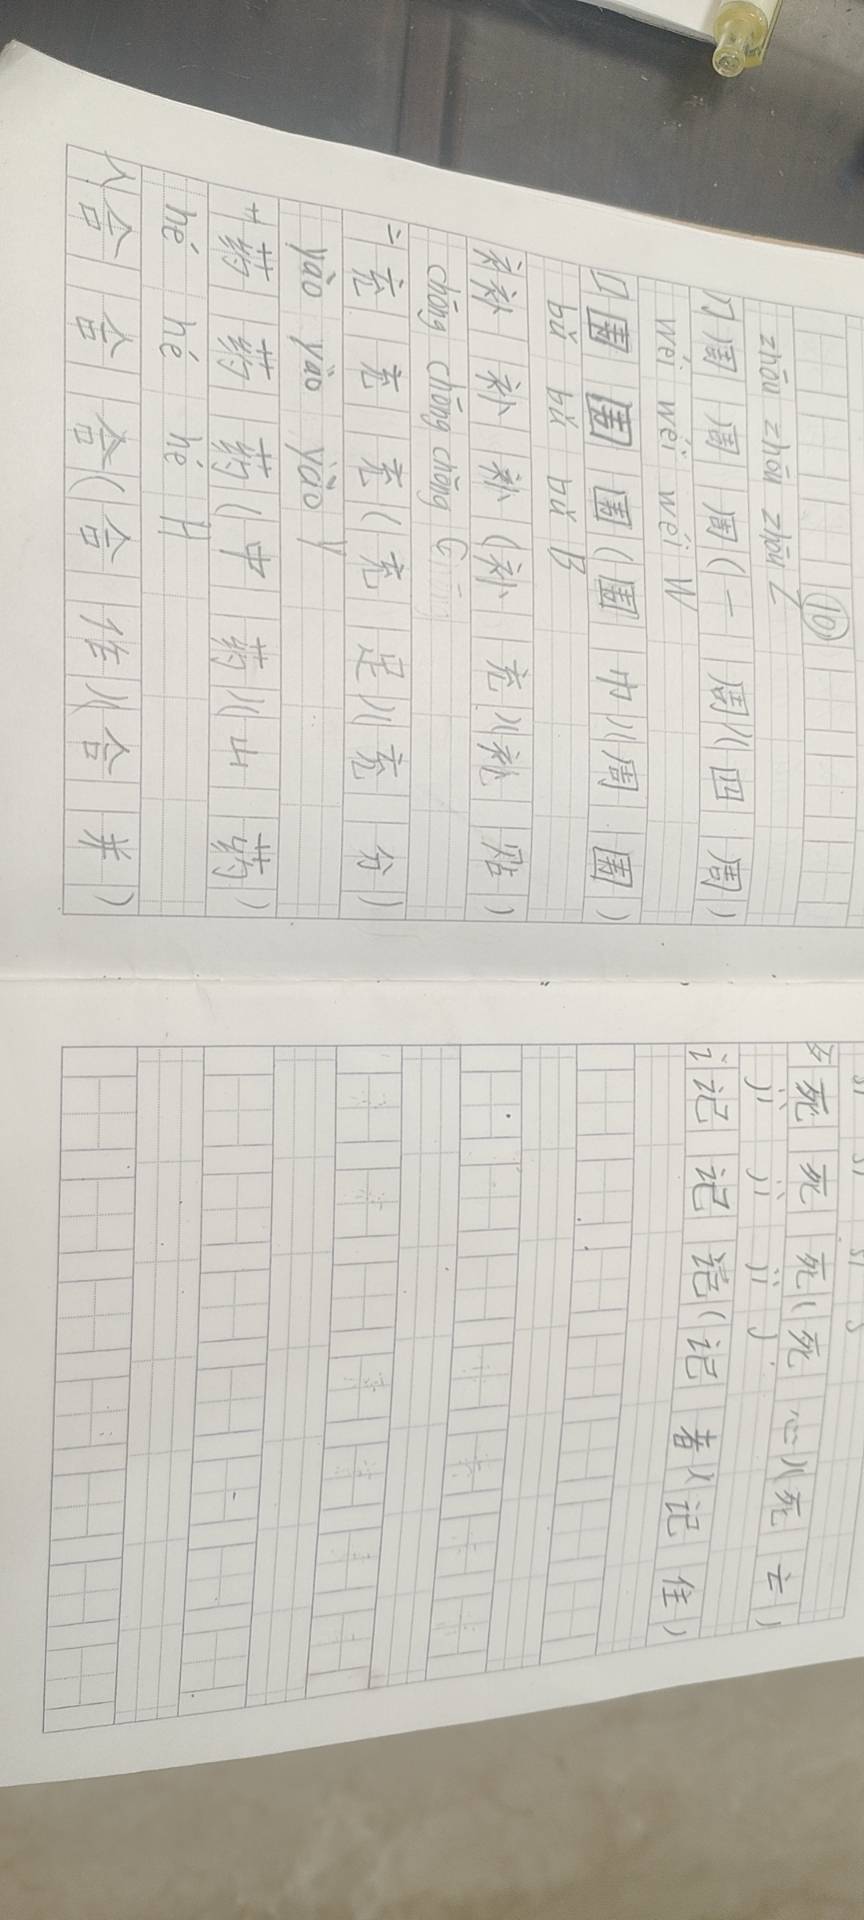 ⑩
zhōu zhōu zhōu Z
冂周 周 周(一 周)(四 周)
wéi wéi wéi W
囗围 围 围(围 巾)(周 围)
bǔ bǔ bǔ B
衤补 补 补(补 充)(补 贴)
chōng chōng chōng C
亠充 充 充(充 足)(充 分)
yào yào yào Y
艹药 药 药(中 药)(山 药)
hé hé hé H
人合 合 合(合 作)(合 并)
sǐ sǐ sǐ S
歹死 死 死(死 心)(死 亡)
jì jì jì J
讠记 记 记(记 者)(记 住)